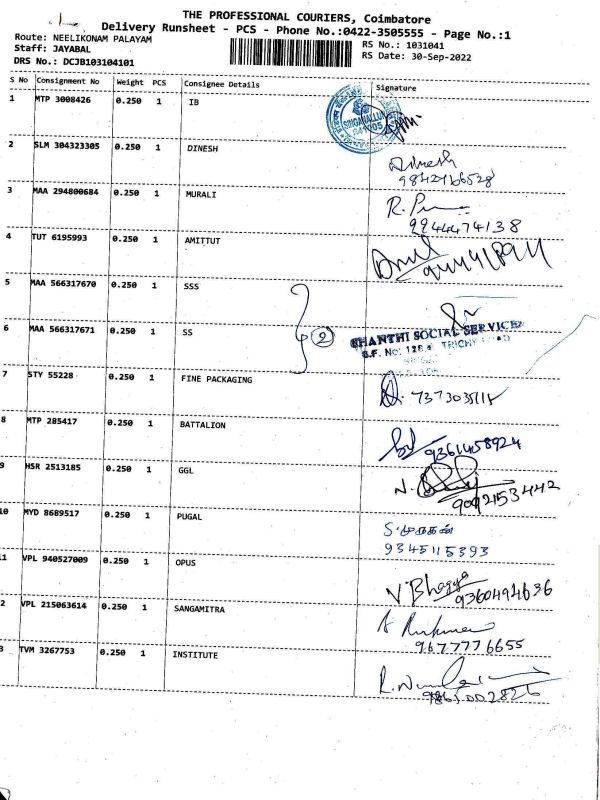 THE PROFESSIONAL COURIERS, Coimbatore
Delivery Runsheet - PCS - Phone No.:0422-3505555 - Page No.:1
Route: NEELIKONAM PALAYAM
RS No.: 1031041
Staff: JAYABAL
RS Date: 30-Sep-2022
DRS No.: DCJB103104101
S No Consignment No Weight PCS Consignee Details Signature
1 MTP 3008426 0.250 1 IB
SINGANALLUR
2 SLM 304323305 0.250 1 DINESH Dinesh
9842166528
3 MAA 294800684 0.250 1 MURALI R.
9944474138
4 TUT 6195993 0.250 1 AMITTUT
5 MAA 566317670 0.250 1 SSS
6 MAA 566317671 0.250 1 SS 2
SHANTHI SOCIAL SERVICE
S.F. NO: 128 TRICHY ROAD
7 STY 55228 0.250 1 FINE PACKAGING
8 MTP 285417 0.250 1 BATTALION 9361458924
9 HSR 2513185 0.250 1 GGL N.
9092153442
10 MYD 8689517 0.250 1 PUGAL S.முருகன்
9345115393
11 VPL 940527009 0.250 1 OPUS V.Bhagya
9360494636
2 VPL 215063614 0.250 1 SANGAMITRA
9677776655
3 TVM 3267753 0.250 1 INSTITUTE R.